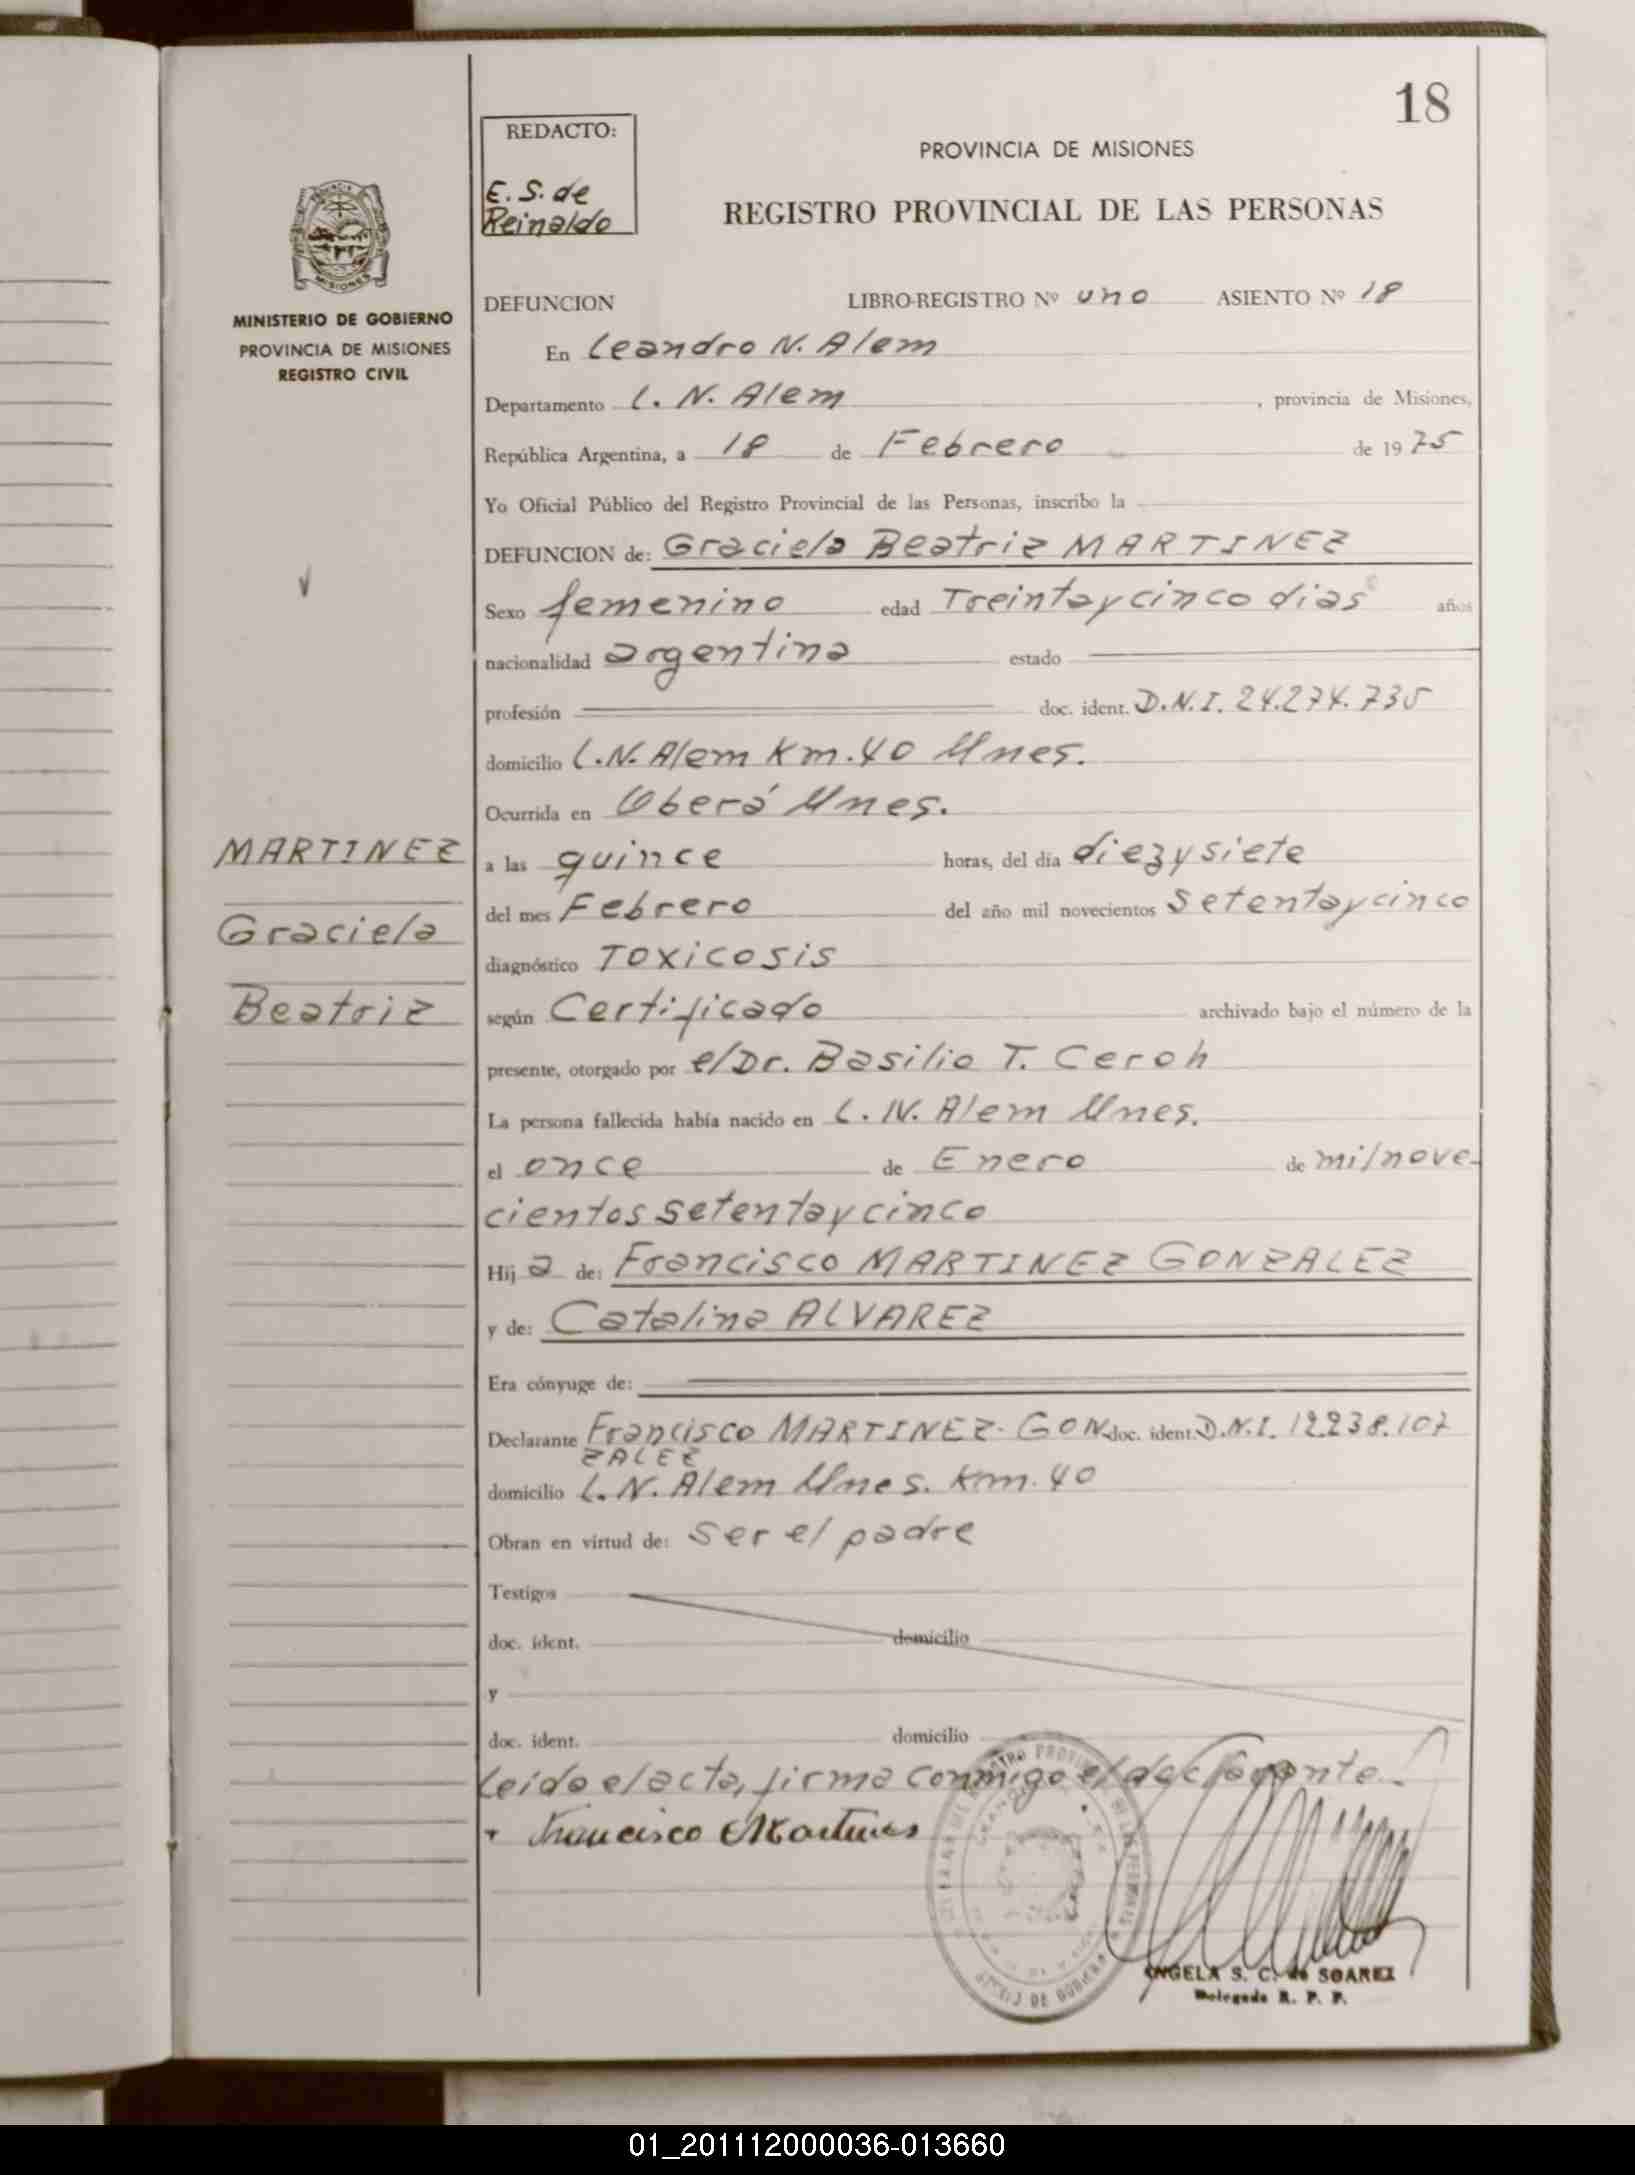 18
REDACTO:
E. S. de
Reinaldo
PROVINCIA DE MISIONES
REGISTRO PROVINCIAL DE LAS PERSONAS
MINISTERIO DE GOBIERNO
PROVINCIA DE MISIONES
REGISTRO CIVIL
DEFUNCION LIBRO-REGISTRO Nº uno ASIENTO Nº 18
En Leandro N. Alem
Departamento L. N. Alem , provincia de Misiones,
República Argentina, a 18 de Febrero de 1975
Yo Oficial Público del Registro Provincial de las Personas, inscribo la
DEFUNCION de: Graciela Beatriz MARTINEZ
Sexo femenino edad Treintaycinco dias años
nacionalidad argentina estado
profesión doc. ident. D.N.I. 24.274.735
domicilio L.N. Alem Km. 40 Mnes.
Ocurrida en Oberá Mnes.
MARTINEZ
Graciela
Beatriz
a las quince horas, del día diezysiete
del mes Febrero del año mil novecientos setentaycinco
diagnóstico Toxicosis
según Certificado archivado bajo el número de la
presente, otorgado por el Dr. Basilio T. Ceroh
La persona fallecida había nacido en L. N. Alem Mnes.
el once de Enero de milnove-
cientos setentaycinco
Hij a de: Francisco MARTINEZ GONZALEZ
y de: Catalina ALVAREZ
Era cónyuge de:
Declarante Francisco MARTINEZ- GON doc. ident. D.N.I. 12.238.107
ZALEZ
domicilio L. N. Alem Mnes. Km. 40
Obran en virtud de: ser el padre
Testigos
doc. ident. domicilio
y
doc. ident. domicilio
Leido el acta, firma conmigo el declarante.-
Francisco Martines
ANGELA S. C. de SOAREZ
Delegada R. P. P.
01_201112000036-013660